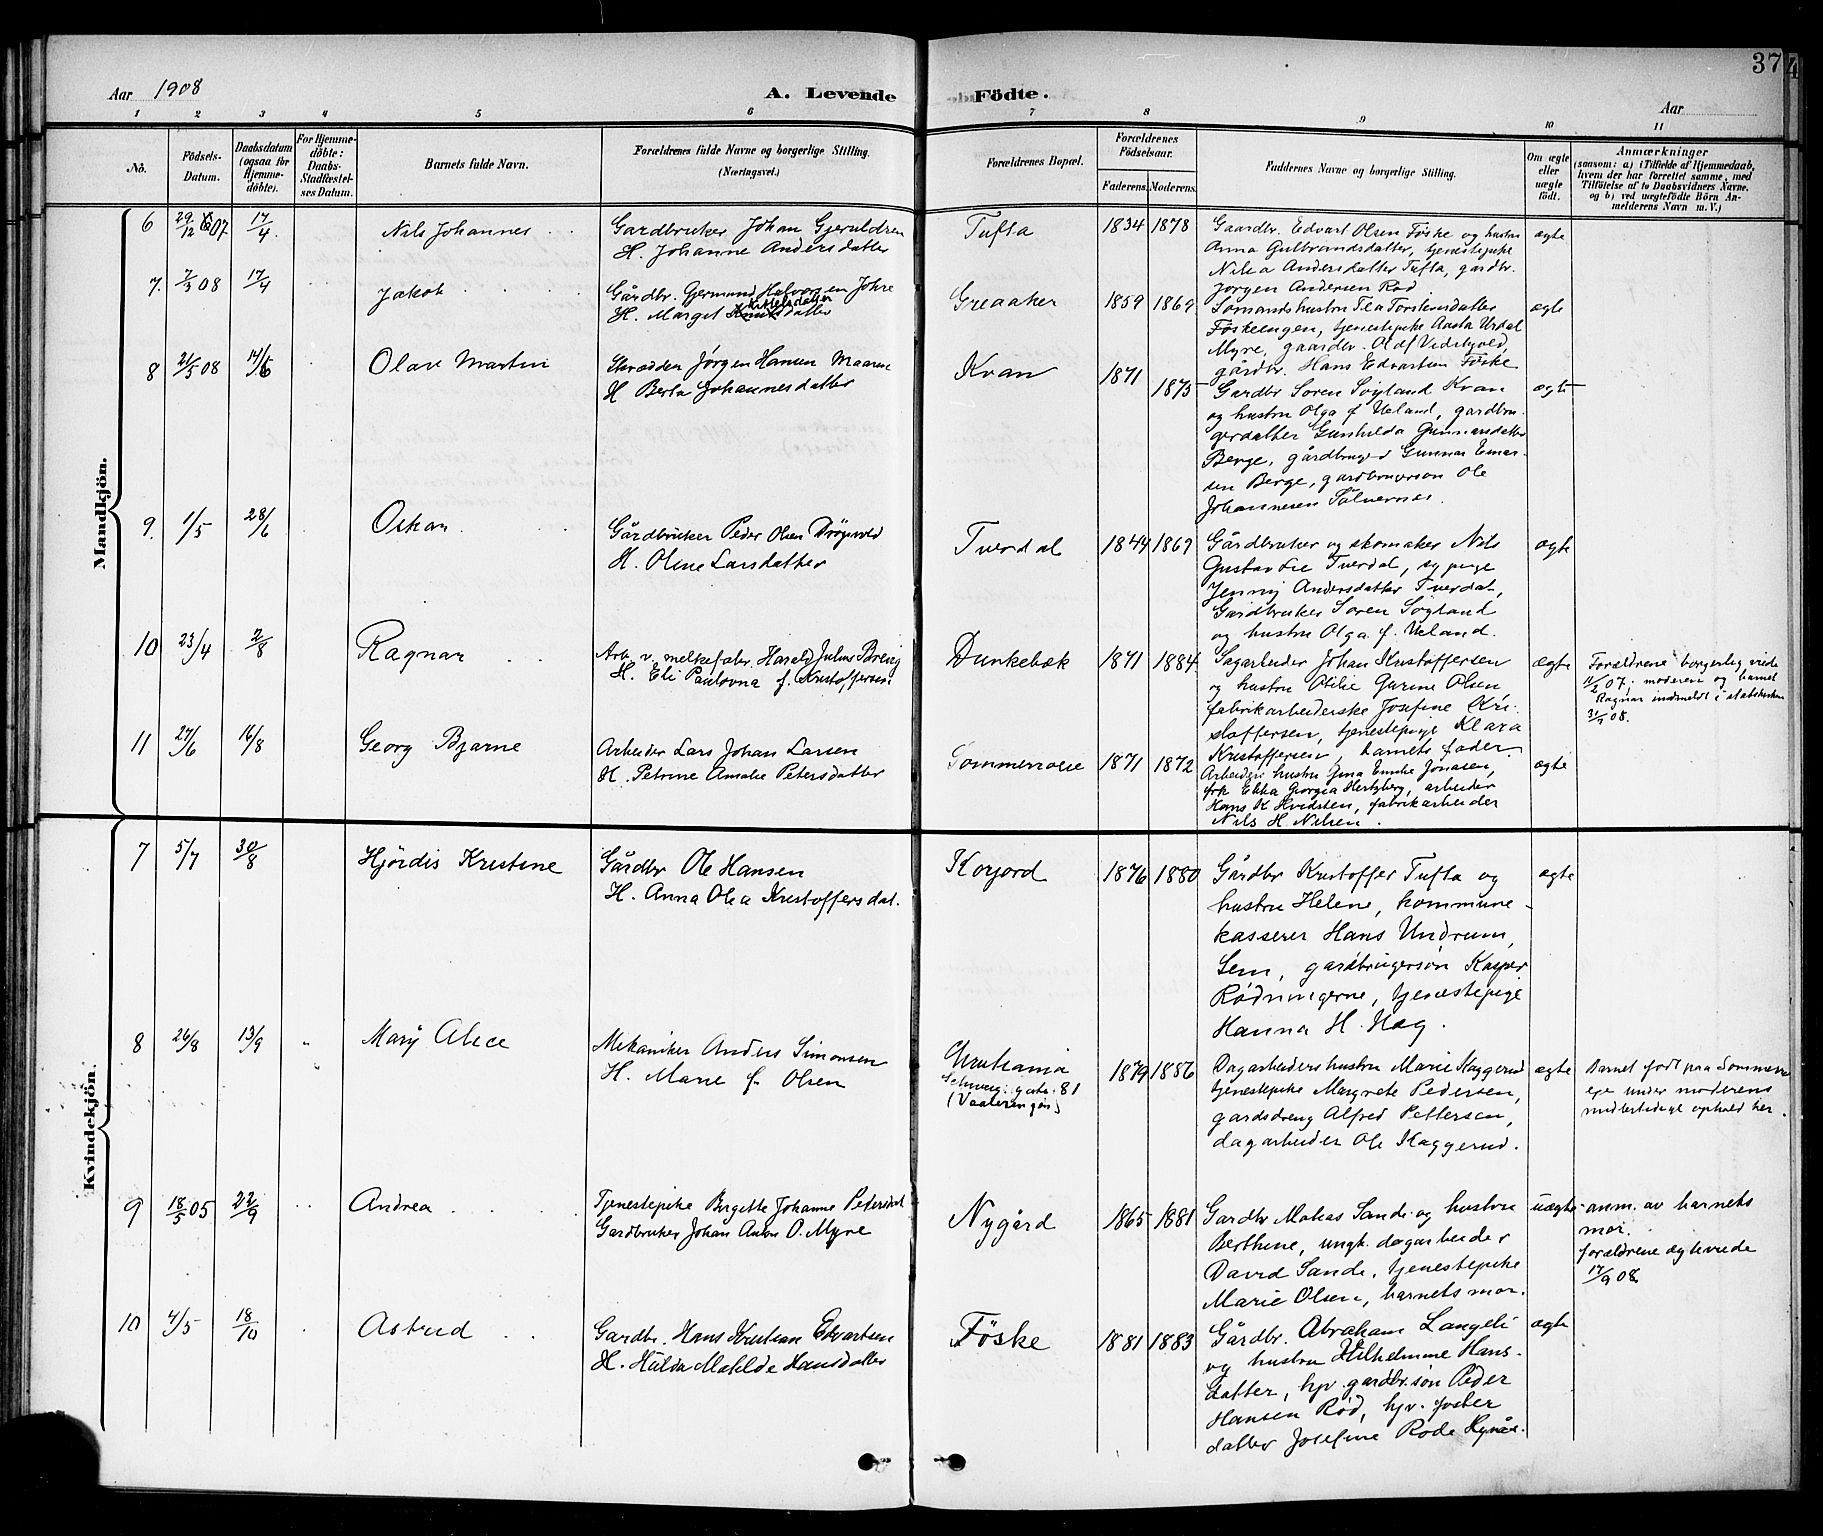 37
Aar 1908
A. Levende Födte.
Aar
1 2 3 4 5 6 7 8 9 10 11
No.
Födsels-Datum.
Daabsdatum (ogsaa for Hjemme-döbte).
For Hjemme-döbte: Daabs-Stadfæstel-ses Datum.
Barnets fulde Navn.
Forældrenes fulde Navne og borgerlige Stilling.
(Næringsvei.)
Forældrenes Bopæl.
Forældrenes Födselsaar.
Faderens. Moderens.
Faddernes Navne og borgerlige Stilling.
Om ægte eller uægte født.
Anmærkninger
(saasom: a) i Tilfælde af Hjemmedaab,
hvem der har forrettet samme, med
Tilföielse af to Daabsvidners Navne.
og b) ved uægtefödte Börn An-
melderens Navn m. V.)
Mandkjön.
6 29/12 07 17/4 Nils Johannes Gardbruker Johan Gjeruldsen
H. Johanne Andersdatter
Tufta 1834 1878 Gaardbr. Edvart Olsen Föske og hustru ægte
Anna Gulbrandsdatter, tjenestepike
Nilea Andersdatter Tufta, gardbr.
Jörgen Andersen Rød
7. 7/3 08 17/4 Jakob Gårdbr. Gjermund Halvorsen Johre
H. Marget Kittelsdatter
Greaaker 1859 1869 Sömands hustru Tea Torstensdatter ægte
Föskeengen, tjenestepike Aasta Urdal
Myre, gaardbr. Olaf Vedsthold,
gårdbr. Hans Edvartsen Föske
8 21/5 08 14/6 Olav Martin Skrædder Jørgen Hansen
H Berta Johannesdatter
Kvan 1871 1875 Gardbr Søren Søyland Kvan ægte
og hustru Olga f. Ueland, gardbru-
gerdatter Gunhilda Gunnarsdatter
Berge, gårdbruger Gunnar Einar-
sen Berge, gardbrugersøn Ole
Johannesen
9. 1/5 28/6 Oskar Gårdbruker Peder Olsen
H. Oline Larsdatter
Tverdal 1844 1869 Gårdbruker og skomaker Nils ægte
Gustav Lie Tverdal, sypige
Jenny Andersdatter Tverdal,
Gårdbruker Søren Søyland
og hustru Olga f. Ueland.
10 23/4 2/8 Ragnar Arb. v. melkefabr. Harald Julius
H. Eli Paulovna f. Kristoffersen
Dunkebæk 1871 1884 Sagarbeider Johan Kristoffersen ægte
og hustru Otilie Gurine Olsen,
fabrikarbeiderske Josefine Kri-
stoffersen, tjenestepige Klara
Kristoffersen, barnets fader.
Forældrene borgerlig viede
11/2 07; moderen og barnet
Ragnar indmeldt i statskirken
31/7 08.
11 27/6 16/8 Georg Bjarne Arbeider Lars Johan Larsen
H. Petrine Amalie Petersdatter
1871 1872 Arbeiders hustru Gina Emilie Jonasen, ægte
frk Ebba Georgia Hertzberg, arbeider
Hans K Hvidsten, fabrikarbeider
Nils H. Nilsen.
Kvindekjön.
7 5/7 30/8 Hjördis Kristine Gårdbr Ole Hansen
H. Anna Olea Kristoffersdat.
Korjord 1876 1880 Gårdbr Kristoffer Tufta og ægte
hustru Helene, kommune-
kasserer Hans Undrum,
Sem, gardbrugersøn Kasper
Rødningerne, tjenestepige
Hanna H. Hag.
8 26/8 13/9 " Mary Alice Mekaniker Anders Simonsen
H. Marie f. Olsen
Christiania
(Vaalerengen)
1879 1886 Dagarbeiders hustru Marie Haggerud ægte
tjenestepike Margrete Pedersen,
gardsdreng Alfred Pettersen,
dagarbeider Ole Haggerud.
Barnet født paa Sommerro-
eie under moderens
midlertidige ophold her.
9 18/5 05 22/9 Andrea Tjenestepike Birgitte Johanne Pedersdat
Gardbruker Johan Anton O. Myre
Nygård 1865 1881 Gardbr Makas Sande og hustru uægte
Berthine, ungk. dagarbeider
David Sande, tjenestepike
Marie Olsen, barnets mor.
anm. av barnets
mor.
forældrene ægteviede
17/9 08
10 4/5 18/10 Astrid Gardbr. Hans Kristian Edvartsen
H. Hulda Matilde Hansdatter
Föske 1881 1883 Gårdbr. Abraham Langeli ægte
og hustru Vilhelmine Hans-
datter, hjv. gardbr.søn Peder
Hansen Rød, hjv. foster
datter Josefine Rode